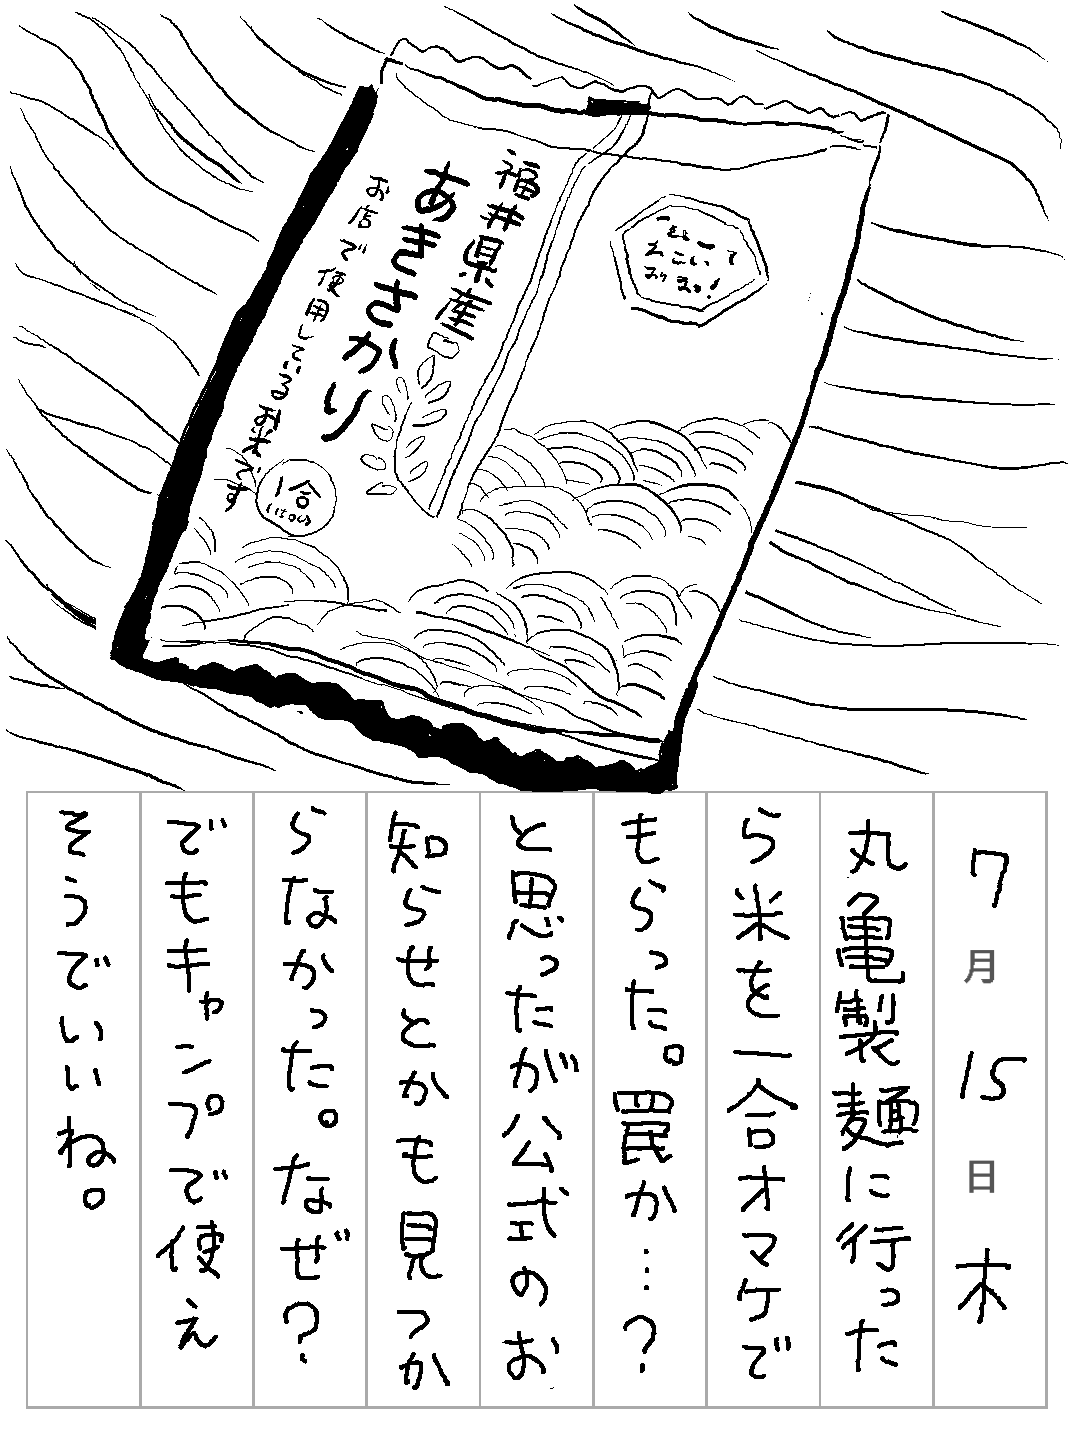 福井県産
あきさかり
お店で使用しているお米です
1合
(150g)
7月15日木
丸亀製麺に行った
ら米を一合オマケで
もらった。罠か…?
と思ったが公式のお
知らせとかも見つか
らなかった。なぜ?
でもキャンプで使え
そうでいいね。